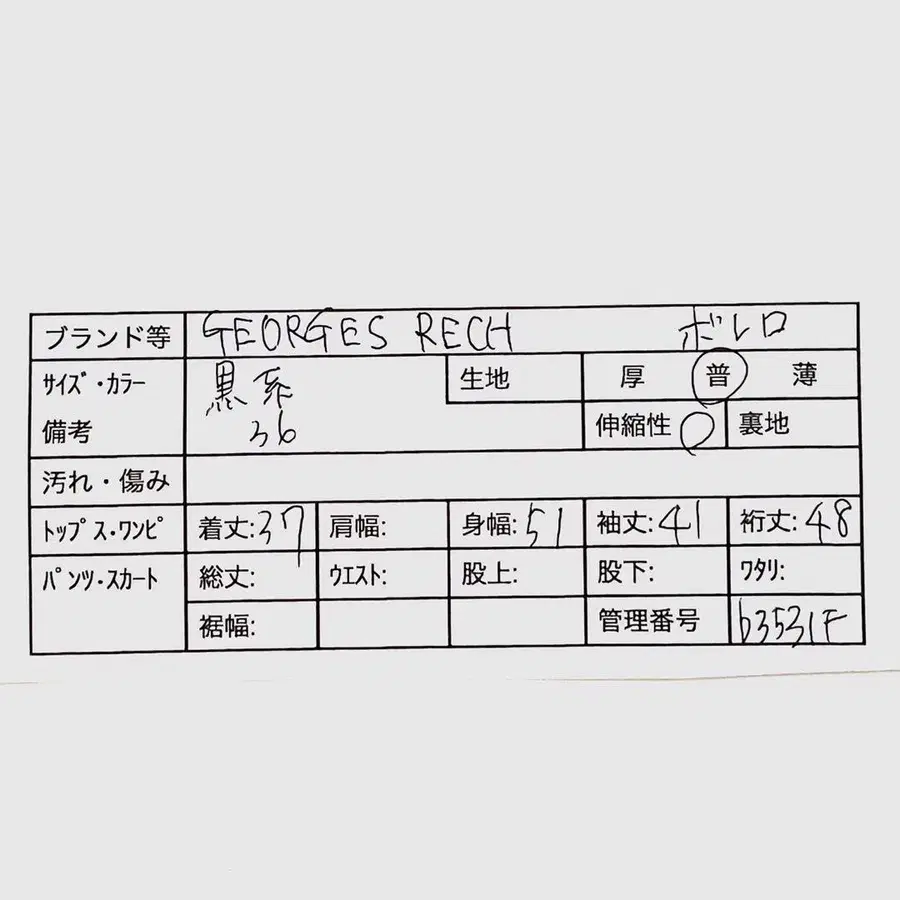 ブランド等 GEORGES RECH ボレロ
サイズ・カラー 黒系 生地 厚 普 薄
備考 36 伸縮性 ○ 裏地
汚れ・傷み
トップス・ワンピ 着丈:37 肩幅: 身幅:51 袖丈:41 裄丈:48
パンツ・スカート 総丈: ウエスト: 股上: 股下: ワタリ:
裾幅: 管理番号 b3531F